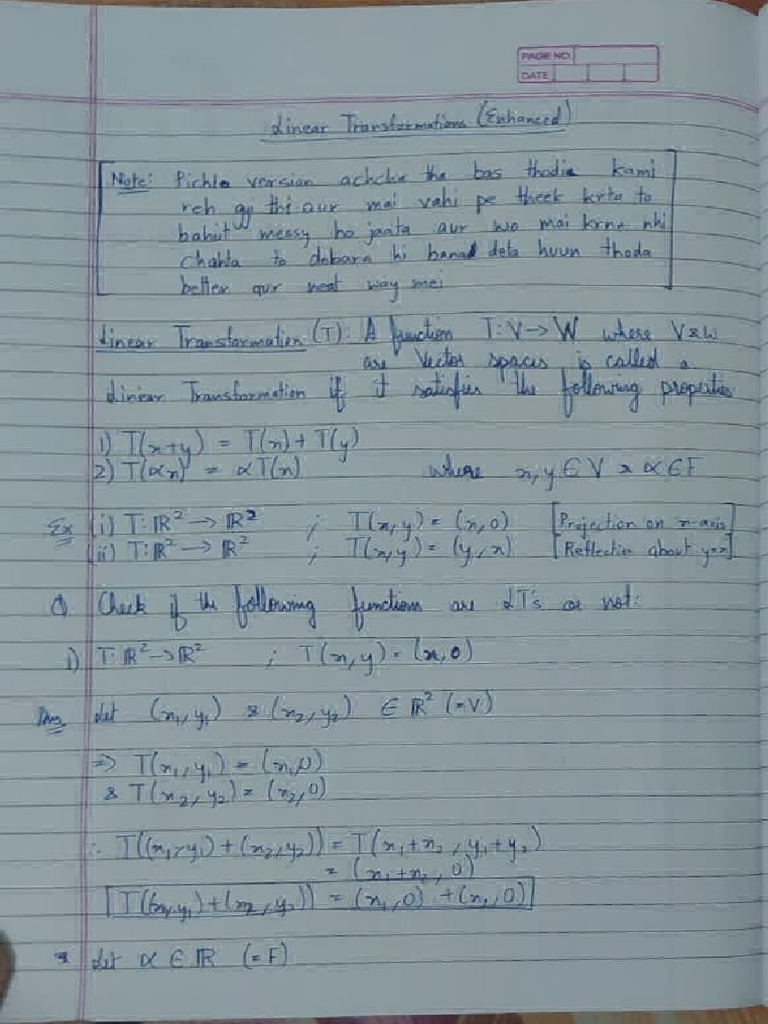 PAGE NO.
DATE
Linear Transformations (Enhanced)
Note: Pichla version achcha tha bas thodi kami
reh gy thi aur mai vahi pe theek krta to
bahut messy ho jaata aur wo mai krna nhi
chahta to dobara hi banad deta huun thoda
better aur neat way mei
Linear Transformation (T): A function T: V → W where V & W
are Vector spaces is called a
Linear Transformation if it satisfies the following properties
1) T(x+y) = T(x) + T(y)
2) T(αx) = αT(x) where x, y ∈ V & α ∈ F
Ex (i) T: ℝ² → ℝ² ; T(x, y) = (x, 0) [Projection on x-axis]
(ii) T: ℝ² → ℝ² ; T(x, y) = (y, x) [Reflection about y=x]
Q Check if the following functions are LT's or not:
i) T: ℝ² → ℝ² ; T(x, y) = (x, 0)
Ans Let (x₁, y₁) & (x₂, y₂) ∈ ℝ² (=V)
⇒ T(x₁, y₁) = (x₁, 0)
& T(x₂, y₂) = (x₂, 0)
∴ T((x₁, y₁) + (x₂, y₂)) = T(x₁+x₂, y₁+y₂)
= (x₁+x₂, 0)
T((x₁, y₁) + (x₂, y₂)) = (x₁, 0) + (x₂, 0)
& Let α ∈ ℝ (=F)